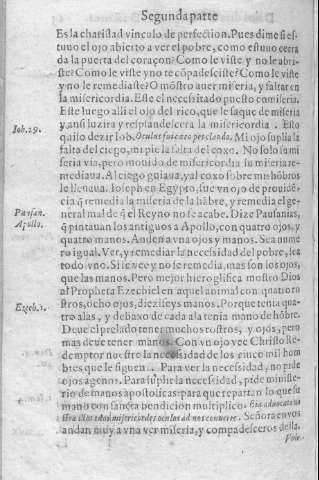 Segunda parte
Es la charidad vinculo de perfection. Pues dime si es-
tuuo el ojo abierto a ver el pobre, como estuuo cerra
da la puerta del coraçon? Como le viste y no le abri-
ste? Como le viste y no te cõpadesciste? Como le viste
y no le remediaste? O mõstro auer miseria, y faltar en
la misericordia. Este el necessitado puesto en miseria.
Este luego alli el ojo del rico, que le saque de miseria
y ansi luzira y resplandescera la misericordia. Esto
Iob. 29.
quiso dezir Iob. Oculus fui cæco pes claudo. Mi ojo suplia la
falta del ciego, mi pie la falta del coxo. No solo su mi
seria via, pero mouido de misericordia su miseria re-
mediaua. Al ciego guiaua, y al coxo sobre mis hõbros
le lleuaua. Ioseph en Egypto, fue vn ojo de prouidẽ
cia q̃ remedia la miseria de la hãbre, y remedia el ge-
Pausan.
neral mal de q̃ el Reyno no se acabe. Dize Pausanias,
Apollo.
q̃ pintauan los antiguos a Apollo, con quatro ojos, y
quatro manos. Anden a vna ojos y manos. Sea nume
ro igual. Ver, y remediar la necessidad del pobre, sea
todo vno. Si se vee y no se remedia, mas son los ojos,
que las manos. Pero mejor hieroglifica mostro Dios
al Propheta Ezechiel en aquel animal con quatro ro
Ezech. 1.
stros, ocho ojos, diez iseys manos. Porque tenia qua-
tro alas, y debaxo de cada ala tenia mano de hõbre.
Deue el prelado tener muchos rostros, y ojos, pero
mas deue tener manos. Con vn ojo vee Christo Re-
demptor nuestro la necessidad de los cinco mil hom
bres que le siguen. Para ver la necessidad, no pide
ojos agenos. Para suplir la necessidad, pide ministe-
rio de manos apostolicas para que repartan lo que su
mano con sancta bendicion multiplico. Eia aduocata no
stra illos tuos misericordes oculos ad nos conuerte. Señora en vos
andan muy a vna ver miseria, y compadesceros della.